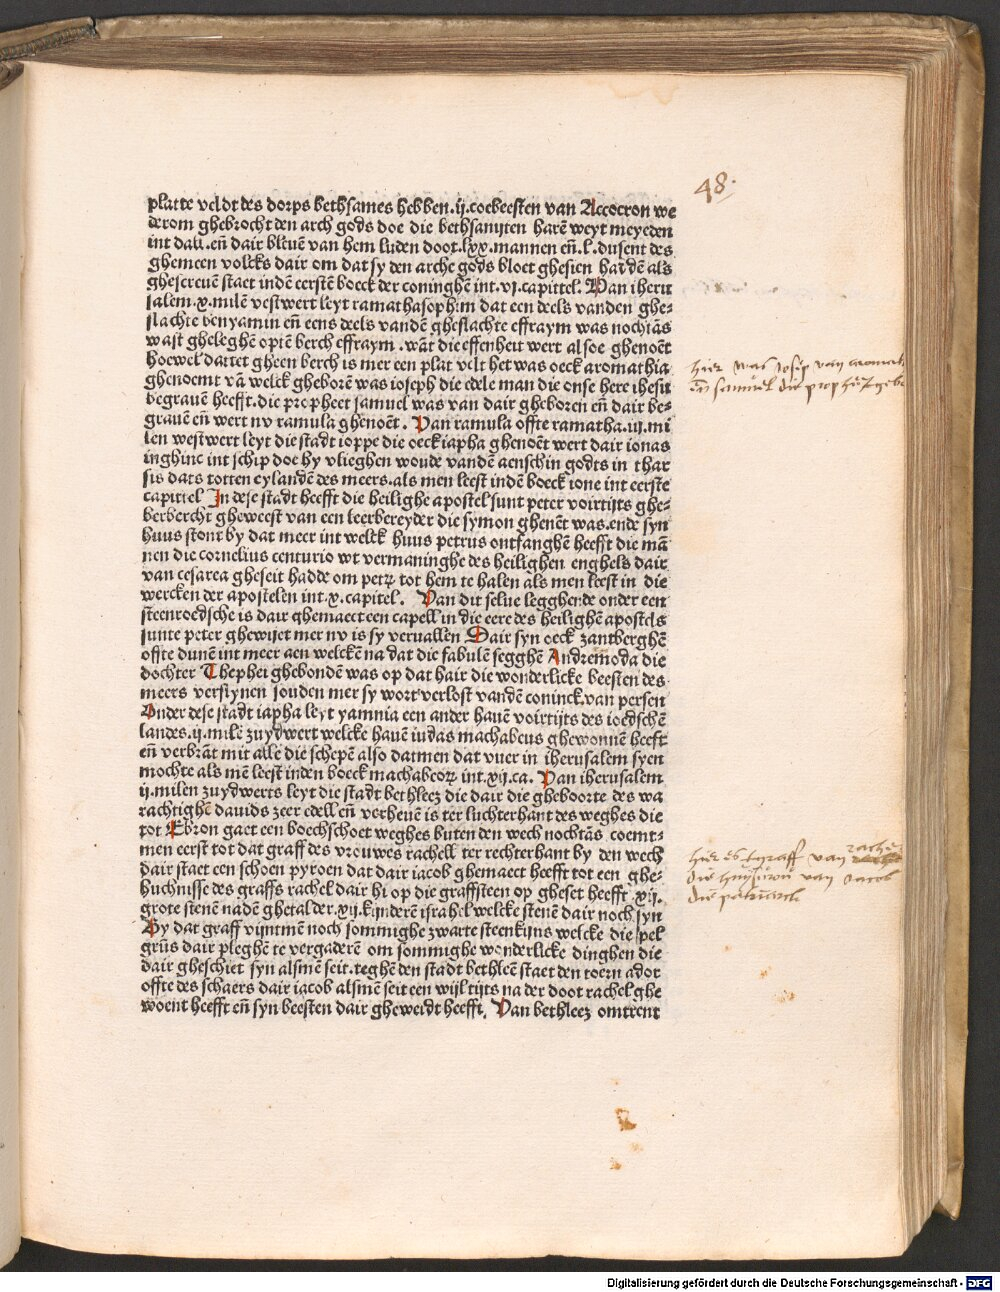 48.
platte veldt des dorps bethsames hebben .ij. coebeesten van Accocron we
derom ghebrocht den arch gods doe die bethsamijten harē weyt meyeden
int dall. eñ dair bleuē van hem luden doot .lxx. mannen eñ .l. dusent des
ghemeen volcks dair om dat sy den arche gods bloet ghesien haddē als
ghescreuē staet indē eerstē boeck der coninghē int .vj. capittel. Van iheru
salem .x. milē vestwert leyt ramathasophim dat een deels vanden ghe⸗
slachte benyamin eñ eens deels vandē gheslachte effraym was nochtās
wast gheleghē optē berch effraym. wāt die effenheit wert alsoe ghenoēt
hoewel dattet gheen berch is mer een plat velt het was oeck aromathia
ghenoemt vā welck gheborē was ioseph die edele man die onse here ihesū
begrauē heefft. die propheet samuel was van dair gheboren eñ dair be⸗
grauē eñ wert nv ramula ghenoēt. Van ramula offte ramatha .iij. mi
len westwert leyt die stadt ioppe die oeck iapha ghenoēt wert dair ionas
inghinc int schip doe hy vlieghen woude vandē aenschin godts in thar
sis dats totten eylandē des meers. als men leest indē boeck ione int eerste
capittel In dese stadt heefft die heilighe apostel sunt peter voirtijts ghe⸗
berbercht gheweest van een leerbereyder die symon ghenēt was. ende syn
huus stont by dat meer int welck huus petrus ontfanghē heefft die mā
nen die cornelius centurio wt vermaninghe des heilighen enghels dair
van cesarea gheseit hadde om petrꝝ tot hem te halen als men leest in die
wercken der apostelen int .x. capitel. Van dit selue legghende onder een
steenroedsche is dair ghemaect een capell in die eere des heilighē apostels
sunte peter ghewijet mer nv is sy veruallen Dair syn oeck zantberghē
offte dunē int meer aen welckē na dat die fabulē segghē Andremoda die
dochter Thephei ghebondē was op dat hair die wonderlicke beesten des
meers verslynen souden mer sy wort verlost vandē coninck van persen
Onder dese stadt iapha leyt yamnia een ander hauē voirtijts des ioedschē
landes .ij. milē zuydwert welcke hauē iudas machabeus ghewonnē heeft
eñ verbrāt mit alle die schepē also datmen dat vuer in iherusalem syen
mochte als mē leest inden boeck machabeoꝝ int .xij. ca. Van iherusalem
ij. milen zuydwerts leyt die stadt bethleez die dair die gheboorte des wa
rachtighē dauids zeer edell eñ verheuē is ter luchterhant des weghes die
tot Ebron gaet een boechschoet weghes buten den wech nochtās coemt⸗
men eerst tot dat graff des vrouwes rachell ter rechterhant by den wech
dair staet een schoen pyroen dat dair iacob ghemaect heefft tot een ghe⸗
huchnisse des graffs rachel dair hi op die graffsteen op gheset heefft .xij.
grote stenē nadē ghetal der .xij. kijnderē israhel welcke stenē dair noch syn
By dat graff vijntmen noch sommighe zwarte steenkijns welcke die pel
grūs dair pleghē te vergaderē om sommighe wonderlicke dinghen die
dair gheschiet syn alsmē seit. teghē den stadt bethleē staet den toern ador
offte des schaers dair iacob alsmē seit een wijl tijts na der doot rachel ghe
woent heefft eñ syn beesten dair gheweidt heefft. Van bethleez omtrent
hier was Josep van aromat
eñ samuel die prophet gebo
hier es tgraff van rachel
die huysurou van Jacob
die patriarch
Digitalisierung gefördert durch die Deutsche Forschungsgemeinschaft - DFG